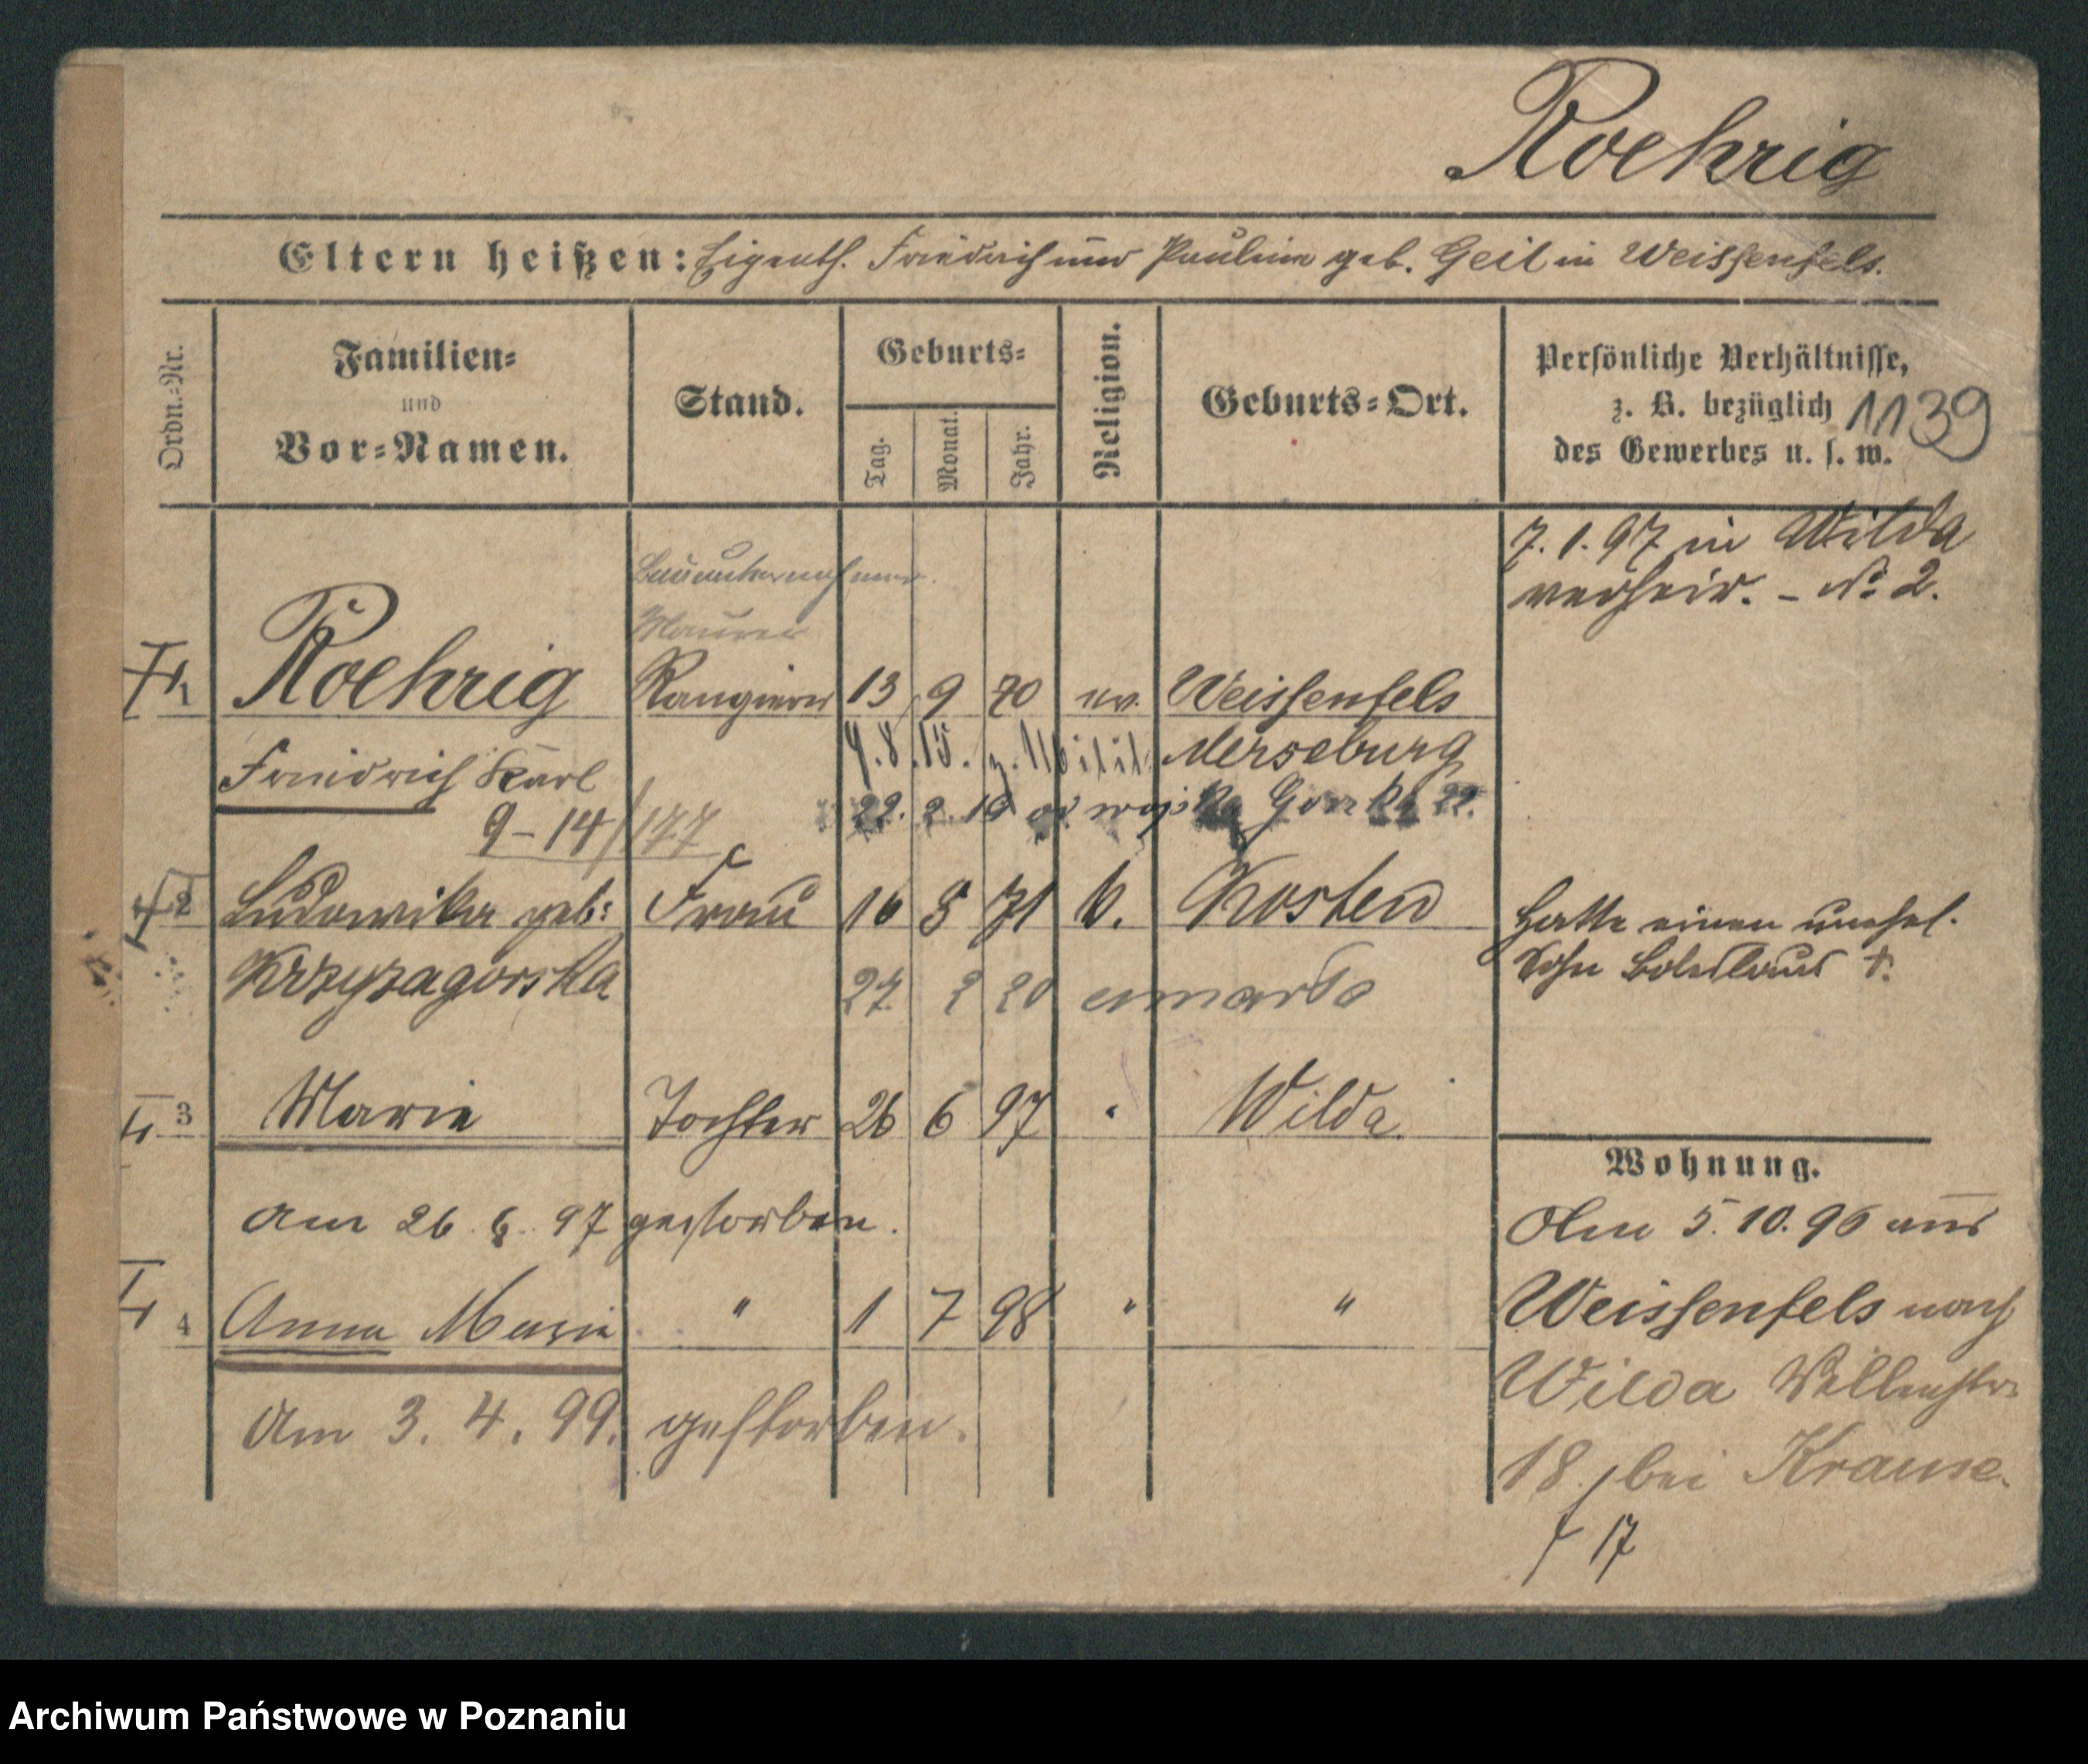 Roehrig
Eltern heißen: Eigenth. Friedrich und Pauline geb. Geil in Weissenfels.
Ordn.-Nr.
Familien-
und
Vor-Namen.
Stand.
Geburts-
Tag.
Monat.
Jahr.
Religion.
Geburts-Ort.
Persönliche Verhältnisse,
z. B. bezüglich
des Gewerbes u. s. w.
1139
7. 1. 97 in Wilda
verheir. - No 2.
Bauunternehmer.
Maurer
1 Roehrig Rangierer 13 9 70 ev. Weissenfels
Friedrich Karl 4.8.15. z. Milit. Merseburg
9-14/177 22. 2. 19 od wojska 22.
2 Ludowika geb: Frau 16 8 71 k. Kosten
Krzyzagorska
27 2 20 umarła
Hatte einen unehel.
Sohn Boleslaus †.
3 Marie Tochter 26 6 97 " Wilda.
am 26. 6. 97 gestorben.
4 Anna Marie " 1 7 98 " "
Am 3. 4. 99. gestorben.
Wohnung.
Am 5. 10. 96 aus
Weissenfels nach
Wilda
18. bei Krause.
17
Archiwum Państwowe w Poznaniu